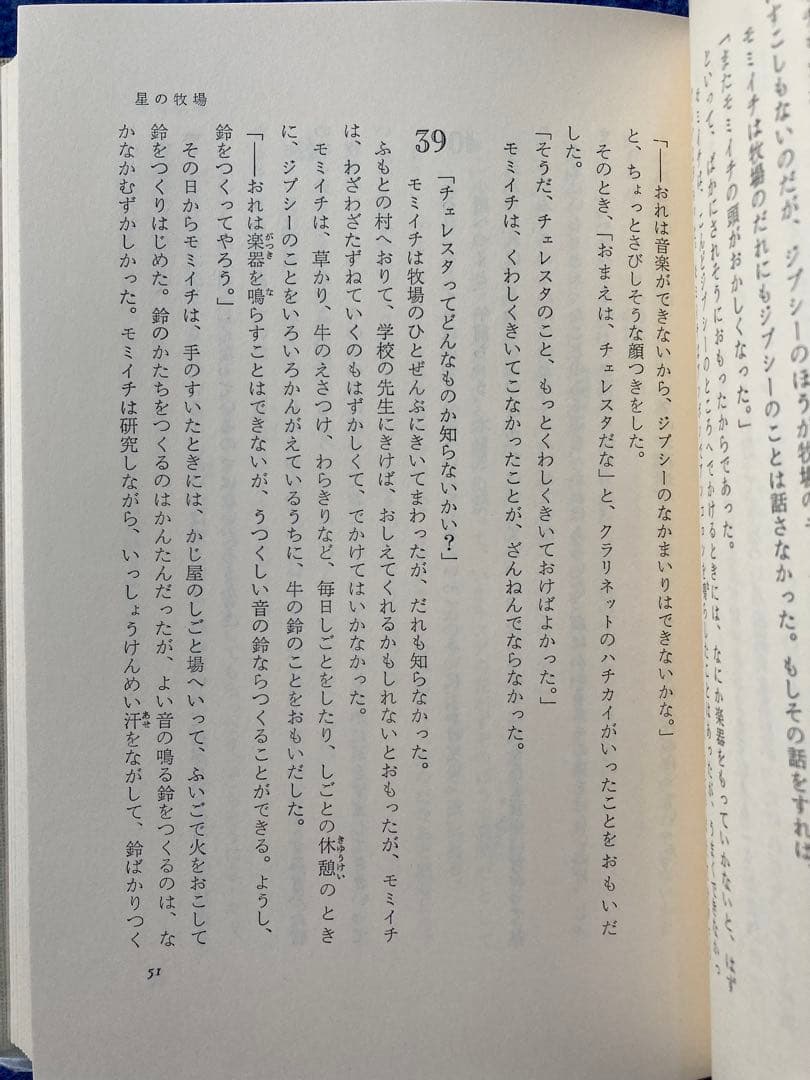 すこしもないのだが、ジプシーのほうが牧場の
モミイチは牧場のだれにもジプシーのことは話さなかった。もしその話をすれば
「またモミイチの頭がおかしくなった。」
といって、ばかにされそうにおもったからであった。
星の牧場
「――おれは音楽ができないから、ジプシーのなかまいりはできないかな。」
と、ちょっとさびしそうな顔つきをした。
そのとき、「おまえは、チェレスタだな」と、クラリネットのハチカイがいったことをおもいだ
した。
「そうだ、チェレスタのこと、もっとくわしくきいておけばよかった。」
モミイチは、くわしくきいてこなかったことが、ざんねんでならなかった。
39
「チェレスタってどんなものか知らないかい?」
モミイチは牧場のひとぜんぶにきいてまわったが、だれも知らなかった。
ふもとの村へおりて、学校の先生にきけば、おしえてくれるかもしれないとおもったが、モミイチ
は、わざわざたずねていくのもはずかしくて、でかけてはいかなかった。
モミイチは、草かり、牛のえさつけ、わらきりなど、毎日しごとをしたり、しごとの休憩のとき
に、ジプシーのことをいろいろかんがえているうちに、牛の鈴のことをおもいだした。
「――おれは楽器を鳴らすことはできないが、うつくしい音の鈴ならつくることができる。ようし、
鈴をつくってやろう。」
その日からモミイチは、手のすいたときには、かじ屋のしごと場へいって、ふいごで火をおこして
鈴をつくりはじめた。鈴のかたちをつくるのはかんたんだったが、よい音の鳴る鈴をつくるのは、な
かなかむずかしかった。モミイチは研究しながら、いっしょうけんめい汗をながして、鈴ばかりつく
51